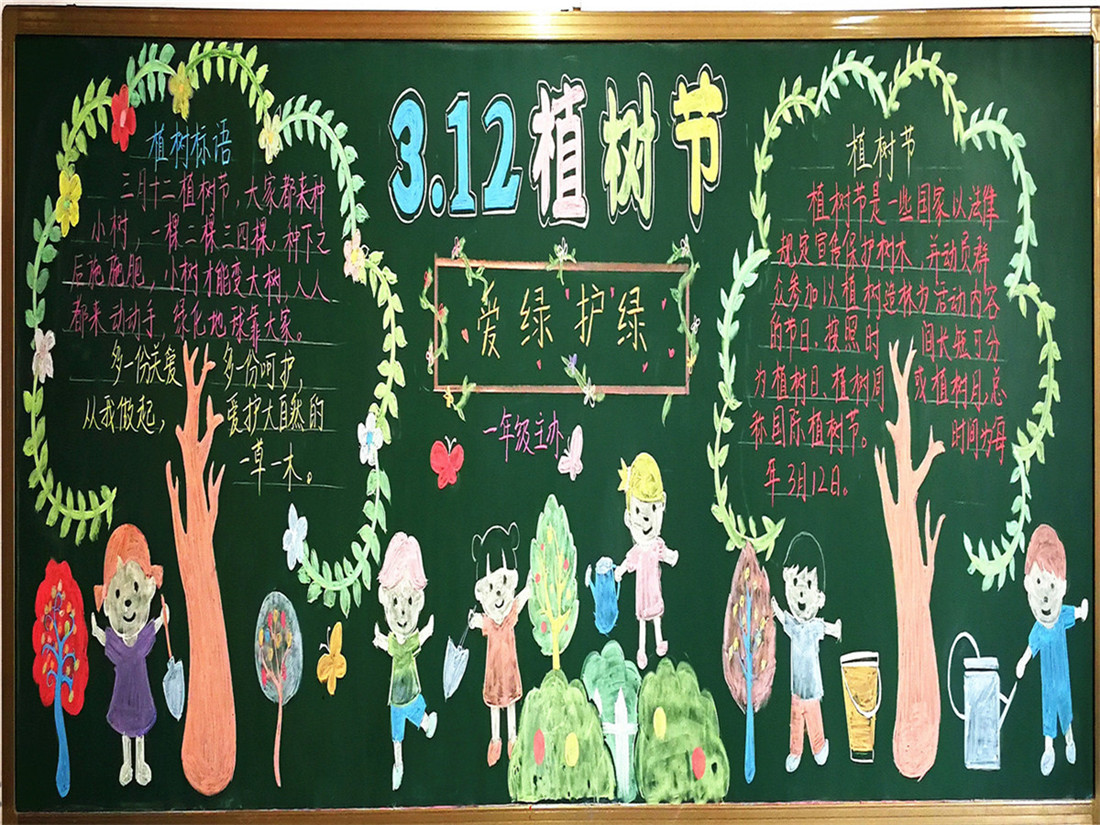 3.12植树节
植树标语
三月十二植树节，大家都来种
小树，一棵二棵三四棵，种下之
后施施肥，小树才能变大树，人人
都来动动手，绿化地球靠大家。
多一份关爱 多一份呵护，
从我做起， 爱护大自然的
一草一木。
爱绿护绿
一年级主办
植树节
植树节是一些国家以法律
规定宣传保护树木，并动员群
众参加以植树造林为活动内容
的节日。按照时 间长短可分
为植树日、植树周 或植树月，总
称国际植树节。 时间为每
年3月12日。